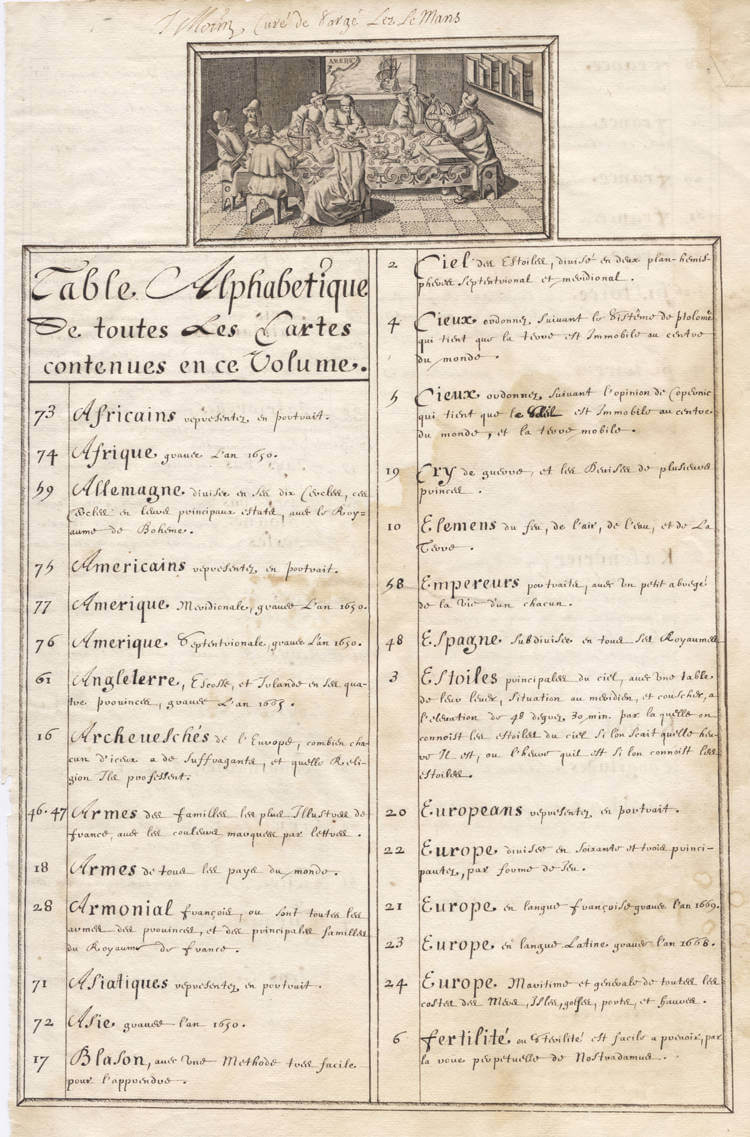 Curé de Sargé Lez Le Mans
AMERIC
Table Alphabetique
De toutes Les Cartes
contenues en ce Volume.
73 Africains representez en portrait.
74 Afrique gravee L'an 1650.
59 Allemagne divisee en ses dix Cercles, ces
Cercles en leurs principaux estats, avec le Roy-
aume de Boheme.
75 Americains representez en portrait.
77 Amerique Meridionale, gravee L'an 1650.
76 Amerique Septentrionale, gravee L'an 1650.
61 Angleterre, Escosse, et Irlande en ses qua-
tre provinces, gravee L'an 1665.
16 Archeueschés de l'Europe, combien cha-
cun d'iceux a de suffragants, et quelle Reli-
gion Ils professent.
46.47 Armes des familles les plus Illustres de
france, avec les couleurs marquees par lettres.
18 Armes de tous les pays du monde.
28 Armorial françois, ou sont toutes les
armes des provinces, et des principales familles
du Royaume de france.
71 Asiatiques representez en portrait.
72 Asie gravee l'an 1650.
17 Blason, avec Une Methode tres facile
pour l'apprendre.
2 Ciel des Estoiles, divisé en deux plan-hemis-
pheres septentrional et meridional.
4 Cieux ordonnez suivant le Sistême de ptolomé
qui tient que la terre est Immobile au centre
du monde.
5 Cieux ordonnez suivant l'opinion de Copernic
qui tient que le Soleil est Immobile au centre
du monde, et la terre mobile.
19 Cry de guerre, et les Devises de plusieurs
princes.
10 Elemens du feu, de l'air, de l'eau, et de La
Terre.
58 Empereurs portraits, avec Un petit abregé
de la vie d'un chacun.
48 Espagne subdivisee en tous ses Royaumes
3 Estoiles principales du ciel, avec Une table
de leur lever, situation au meridien, et couscher, a
l'elevation de 48 degrez 30 min. par la quelle on
connoist les estoiles du ciel si lon scait quelle heu-
re Il est, ou l'heure quil est si lon connoist les
estoiles.
20 Europeans representez en portrait.
22 Europe divisee en soixante et trois princi-
pautez, par forme de Jeu.
21 Europe en langue françoise gravee l'an 1669.
23 Europe en langue Latine gravee l'an 1668.
24 Europe Maritime et generale de toutes les
costes des Mers, Isles, golfes, ports, et havres.
6 fertilité ou sterilité est facile a prevoir, par
la roue perpetuelle de Nostradamus.